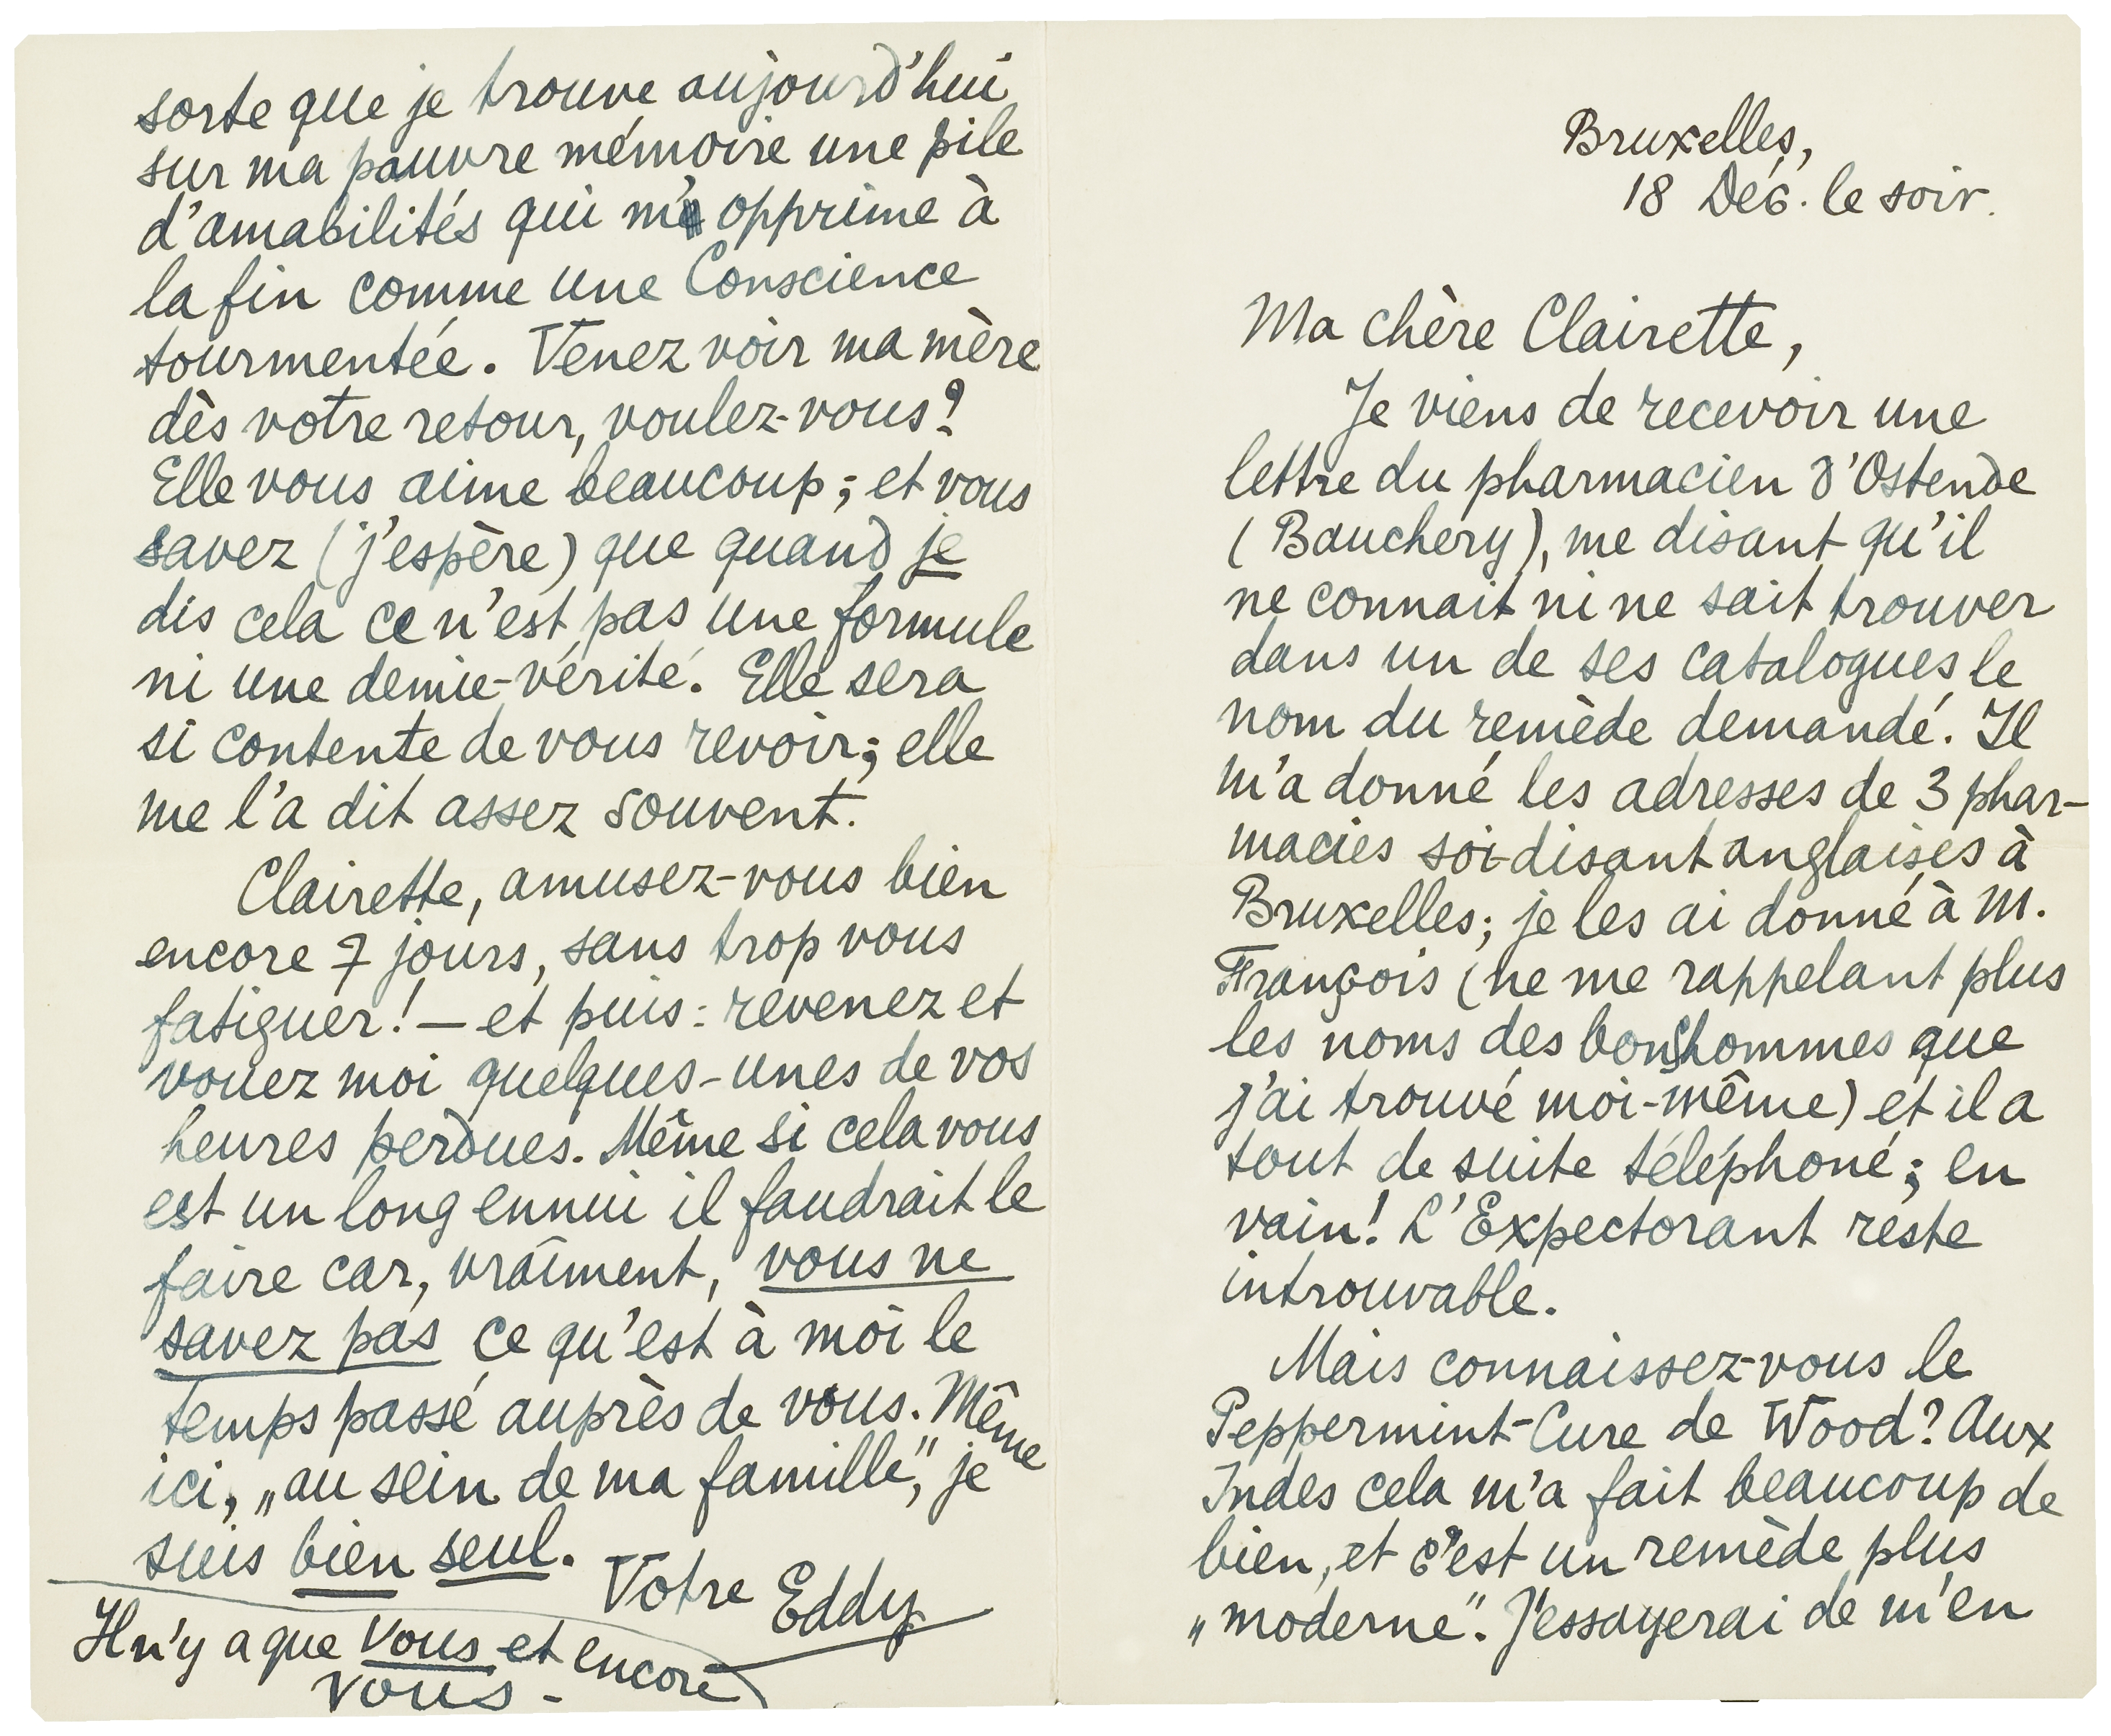 Bruxelles,
18 Déc. le soir.
Ma chère Clairette,
Je viens de recevoir une
lettre du pharmacien d'Ostende
(Bauchery), me disant qu'il
ne connait ni ne sait trouver
dans un de ses catalogues le
nom du remède demandé. Il
m'a donné les adresses de 3 phar-
macies soi-disant anglaises à
Bruxelles; je les ai donné à M.
François (ne me rappelant plus
les noms des bonshommes que
j'ai trouvé moi-même) et il a
tout de suite téléphoné; en
vain! L'Expectorant reste
introuvable.
Mais connaissez-vous le
Peppermint-Cure de Wood? Aux
Indes cela m'a fait beaucoup de
bien, et c'est un remède plus
„moderne". J'essayerai de m'en
sorte que je trouve aujourd'hui
sur ma pauvre mémoire une pile
d'amabilités qui m'opprime à
la fin comme une Conscience
tourmentée. Venez voir ma mère
dès votre retour, voulez-vous?
Elle vous aime beaucoup; et vous
savez (j'espère) que quand je
dis cela ce n'est pas une formule
ni une demie-vérité. Elle sera
si contente de vous revoir; elle
me l'a dit assez souvent.
Clairette, amusez-vous bien
encore 7 jours, sans trop vous
fatiguer! — et puis: revenez et
vouez moi quelques-unes de vos
heures perdues. Même si cela vous
est un long ennui il faudrait le
faire car, vraîment, vous ne
savez pas ce qu'est à moi le
temps passé auprès de vous. Même
ici, „au sein de ma famille", je
suis bien seul.
Votre Eddy
Il n'y a que vous et encore
vous -